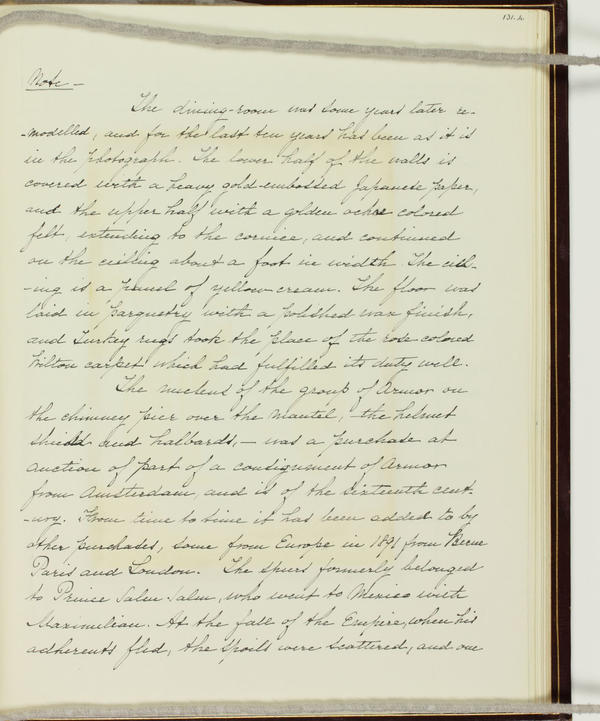 131.A.
Note -
The dining-room was some years later re-
-modelled, and for the last ten years has been as it is
in the photograph. The lower half of the walls is
covered with a heavy gold-embossed Japanese paper,
and the upper half with a golden ochre colored
felt, extending to the cornice, and continued
on the ceiling about a foot in width. The ceil-
-ing is a panel of yellow-cream. The floor was
laid in parquetry with a polished wax finish,
and Turkey rugs took the place of the rose colored
Wilton carpet which had fulfilled its duty well.
The nucleus of the group of Armor on
the chimney pier over the mantel, - the helmet
shield and halbards, - was a purchase at
auction of part of a consignment of Armor
from Amsterdam, and is of the sixteenth cent-
-ury. From time to time it has been added to by
other purchases, some from Europe in 1891 from Berne
Paris and London. The spurs formerly belonged
to Prince Salm-Salm, who went to Mexico with
Maximilian. At the fall of the Empire, when his
adherents fled, the spoils were scattered, and one